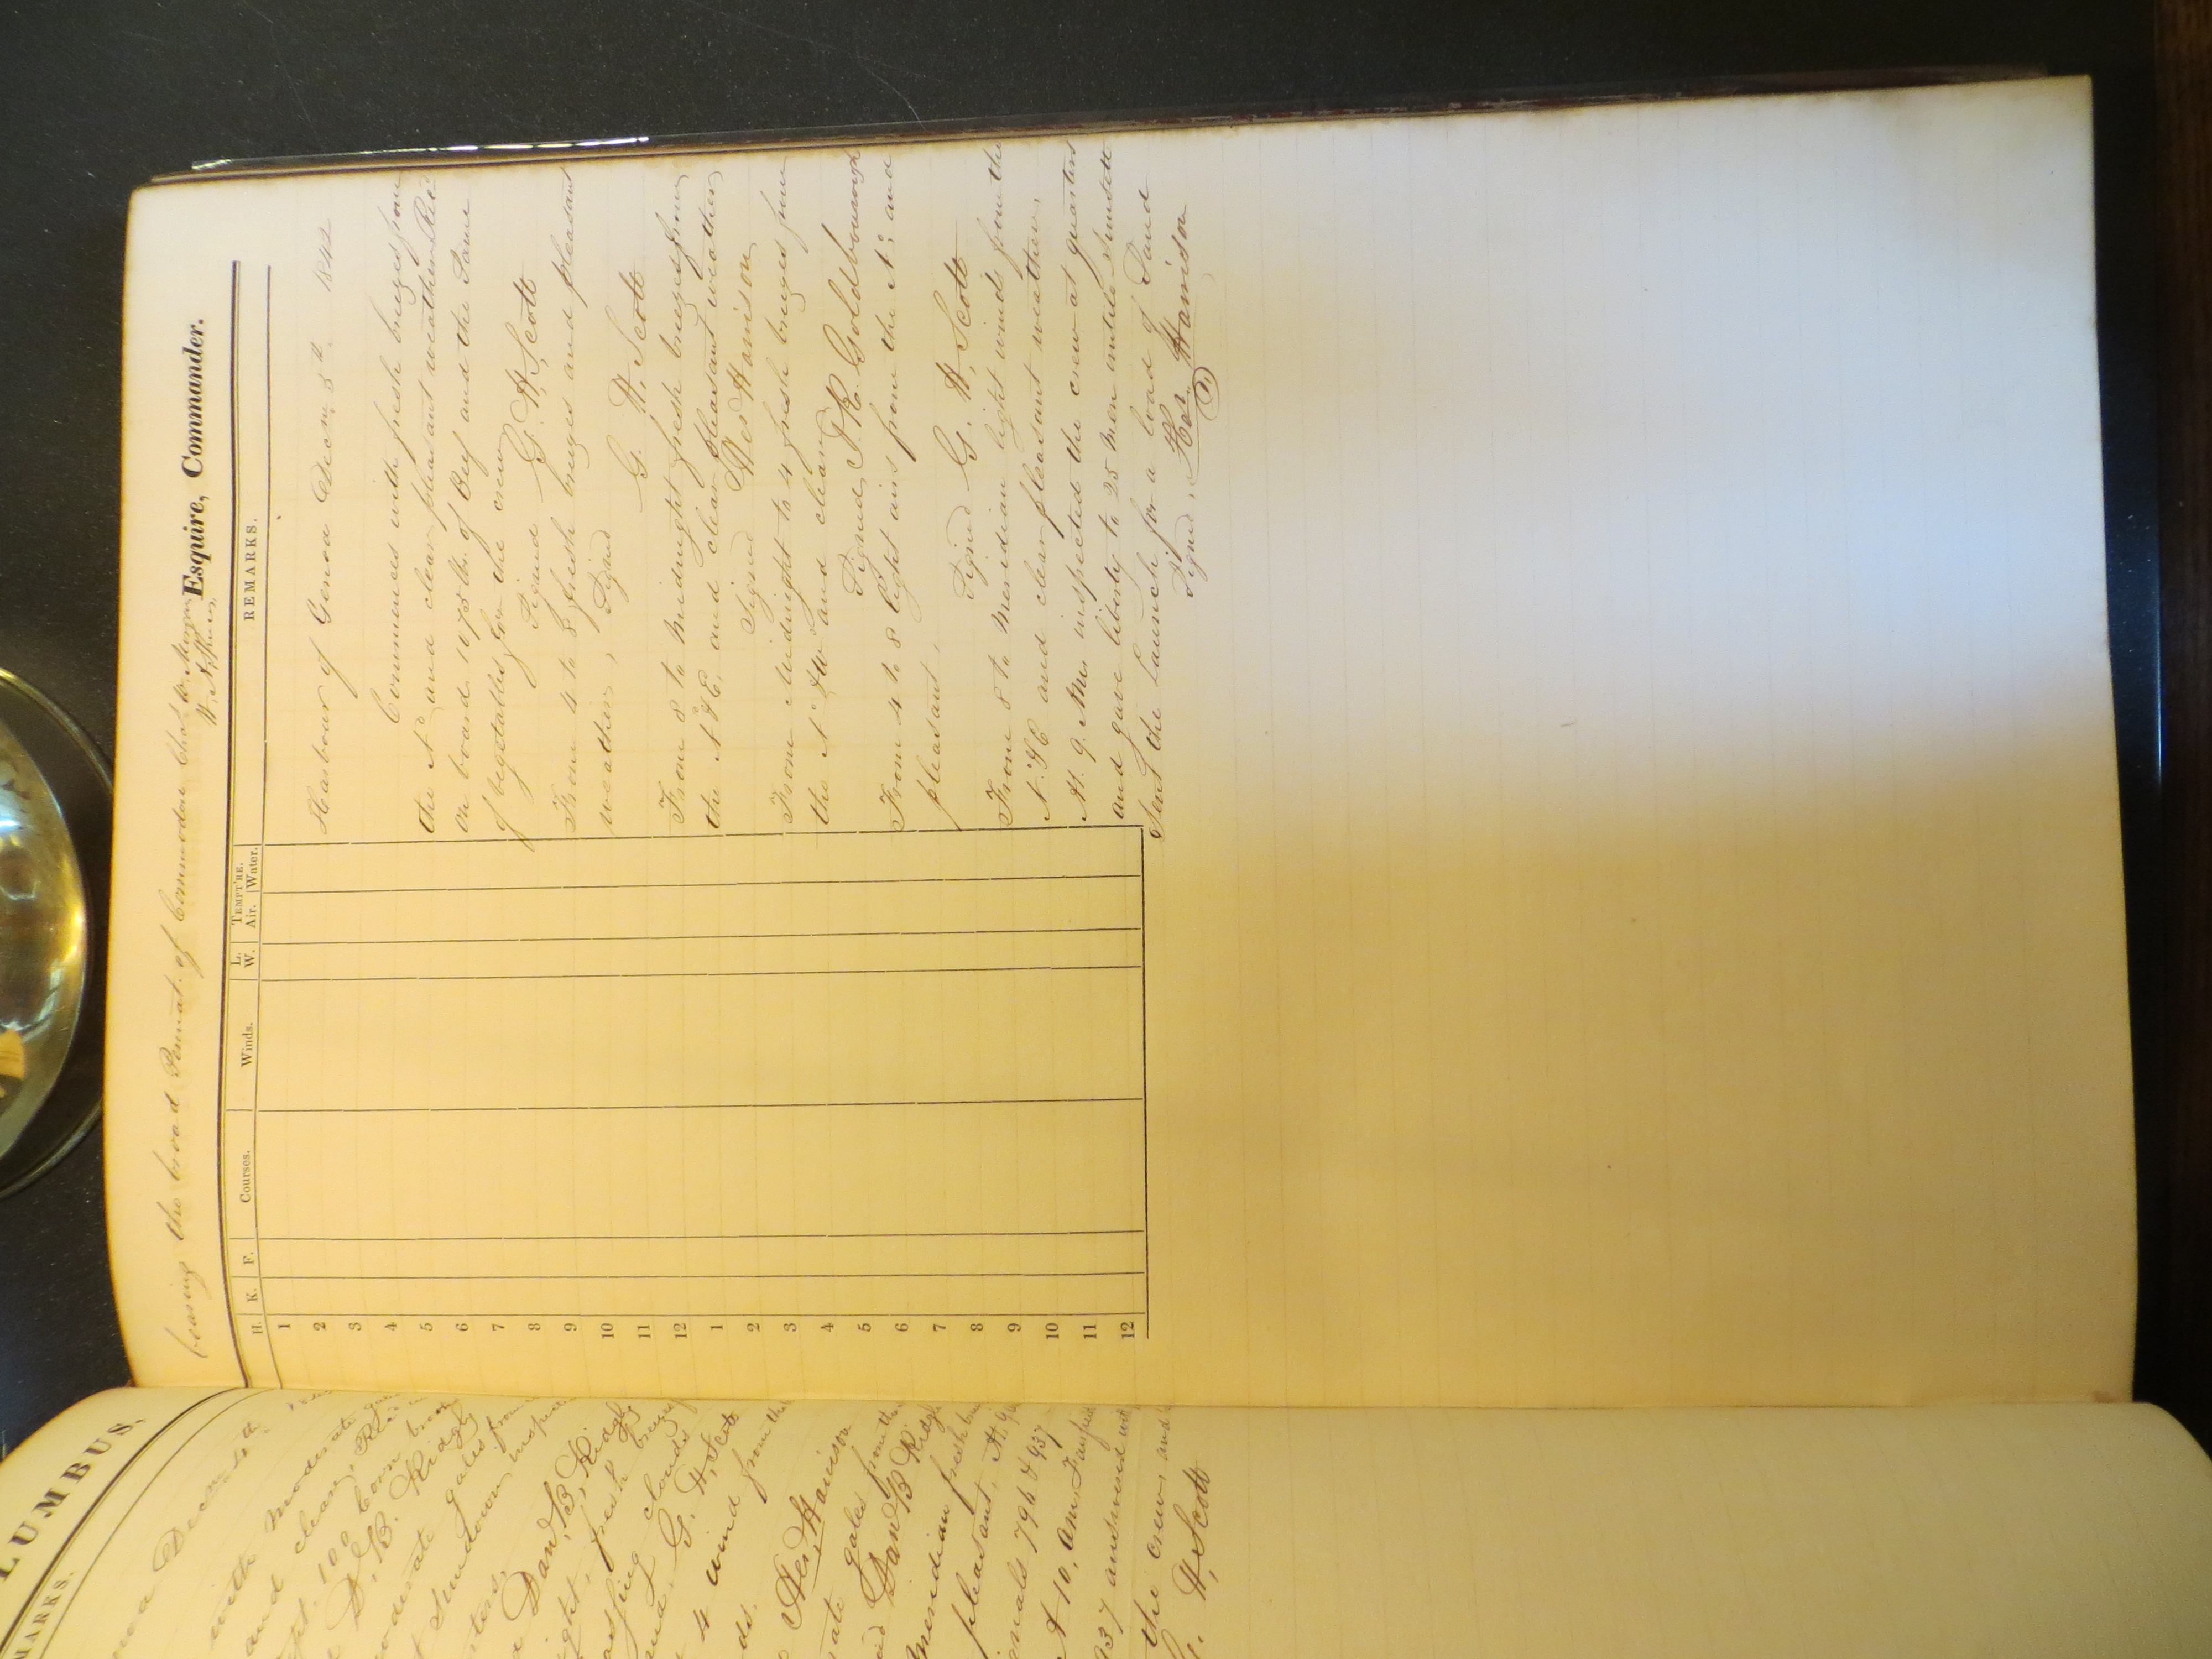 bearing the broad Pennat. of Commodore Chas. W. Morgan
W. Esquire, Commander.
H. K. F. Courses. Winds. L. W. TEMPT'RE. Air. Water. REMARKS.
1
2
3
4
5
6
7
8
9
10
11
12
1
2
3
4
5
6
7
8
9
10
11
12
Harbour of Genoa Decem. 5th. 1842
Commences with fresh breezes from
the Nd and clear pleasant weather Recd
on board 1075 lbs. of Beef and the Same
of vegetables for the crew
Signed G. H. Scott
From 4 to 8 fresh breezes and pleasant
weather, Signed G. H. Scott
From 8 to Midnight fresh breezes from
the N & E, and clear pleasant weather
Signed Harrison
From Midnight to 4 fresh breezes from
the N & W and clear
Signed J. R. Goldsborough
From 4 to 8 light airs from the Nd and
pleasant,
Signed G. H. Scott
From 8 to Meridian light winds from the
N. & E and clear pleasant weather,
At 9. AM. inspected the crew at quarters
and gave liberty to 25 Men untill Sunsett
Sent the Launch for a load of Sand
Signed, Harrison
LUMBUS,
MARKS.
Decem. 4th
with Moderate
and clear, Recd
100
D. B. Ridg
gales from
Sundown inspec
Dan. B. Ridg
fresh breez
passing clouds
G. H. Scott
4 wind from the
Harrison
gales from the
Dan B Ridg
Meridian fresh
pleasant, At 9
signals 796 & 937
At 10, am,
937 answered
the crew, and
G. H. Scott